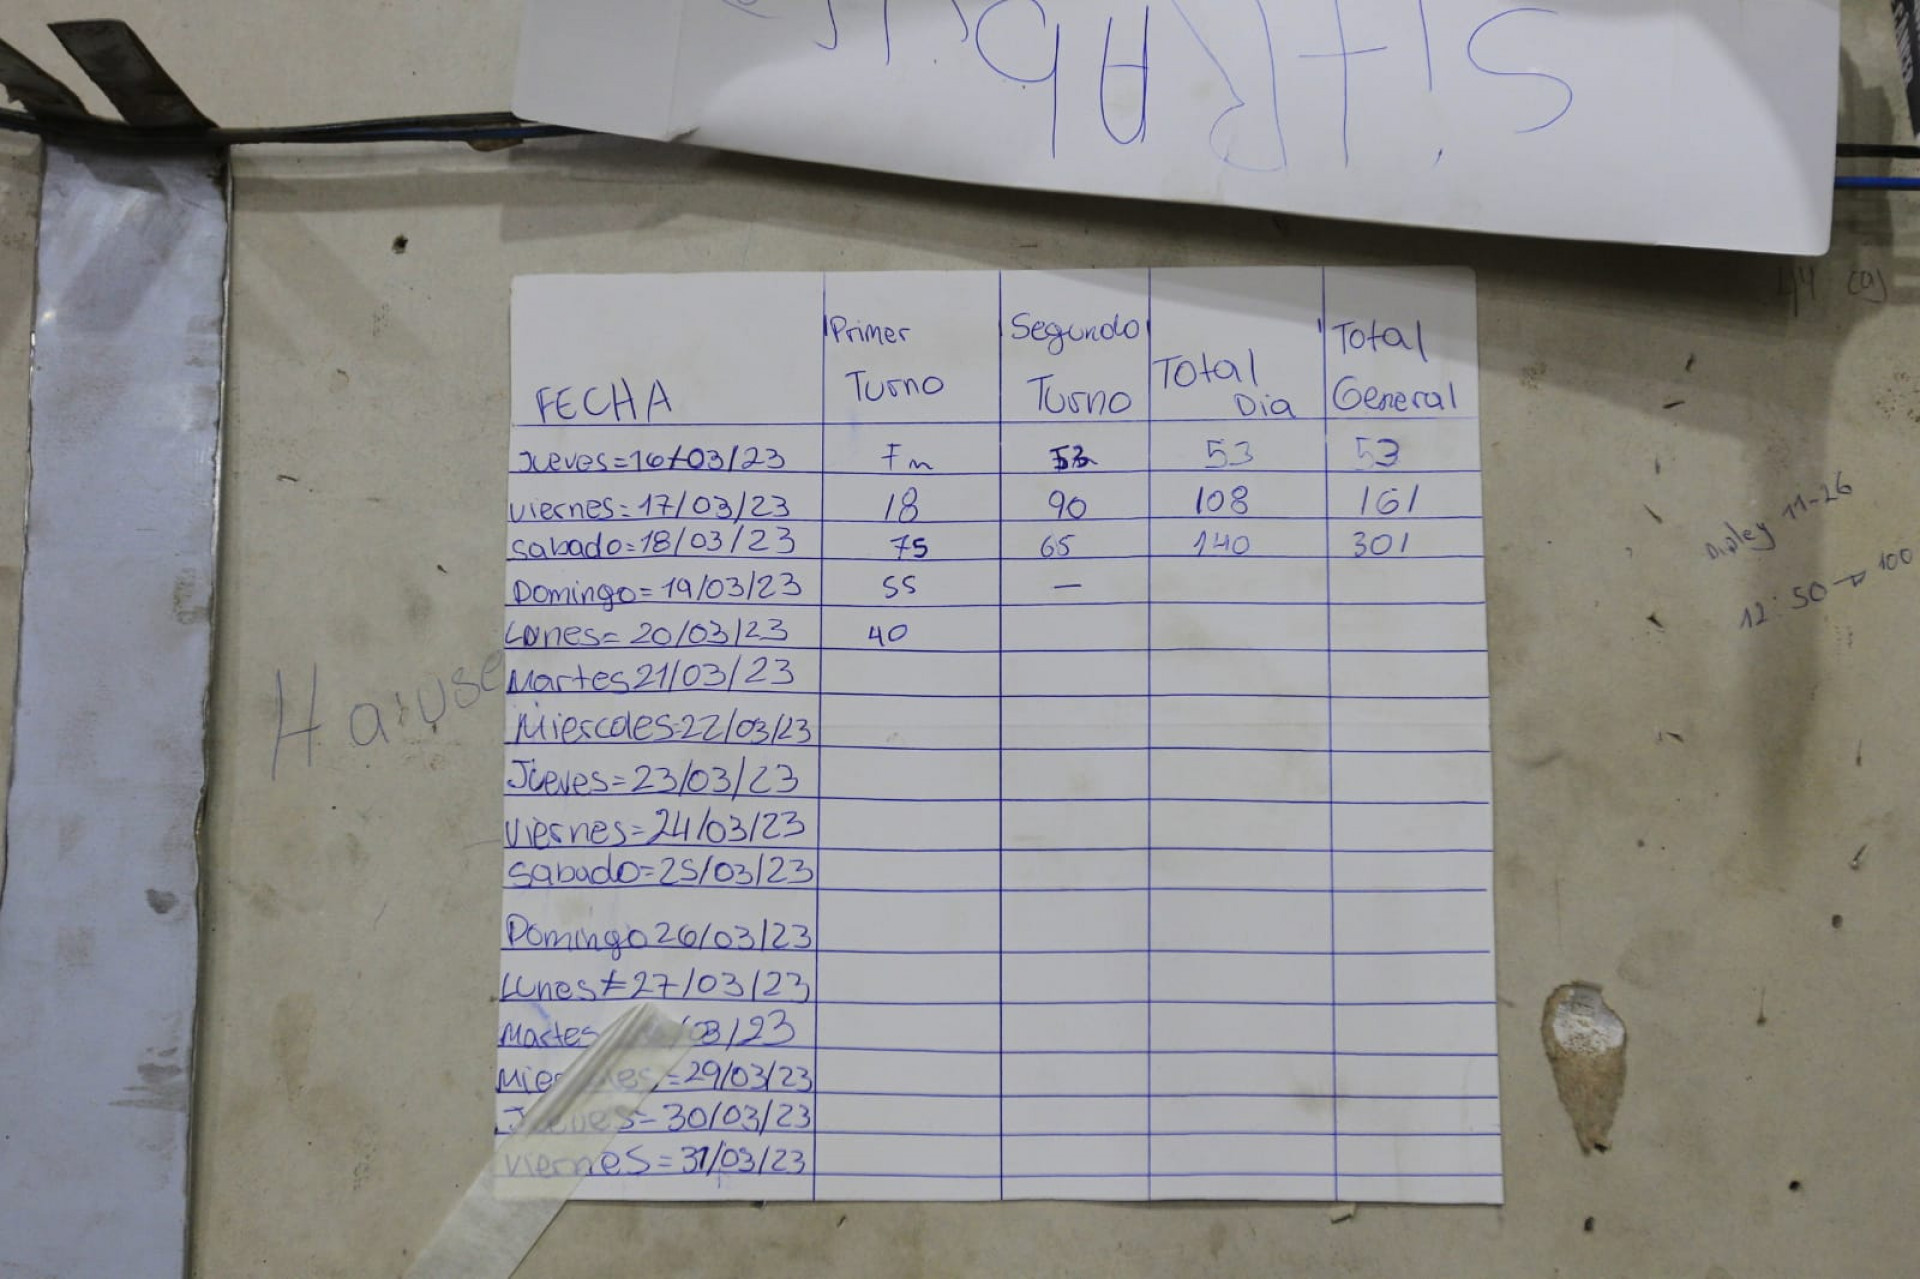 FECHA Primer Turno Segundo Turno Total Dia Total General
Jueves=16/03/23 Fm 53 53 53
viernes=17/03/23 18 90 108 161
sabado=18/03/23 75 65 140 301
Domingo=19/03/23 55 —
Lunes=20/03/23 40
Martes 21/03/23
Miescoles=22/03/23
Jueves=23/03/23
Viernes=24/03/23
sabado=25/03/23
Domingo 26/03/23
Lunes=27/03/23
Martes /03/23
=29/03/23
Jueves=30/03/23
viernes=31/03/23
11-26
12:50→100